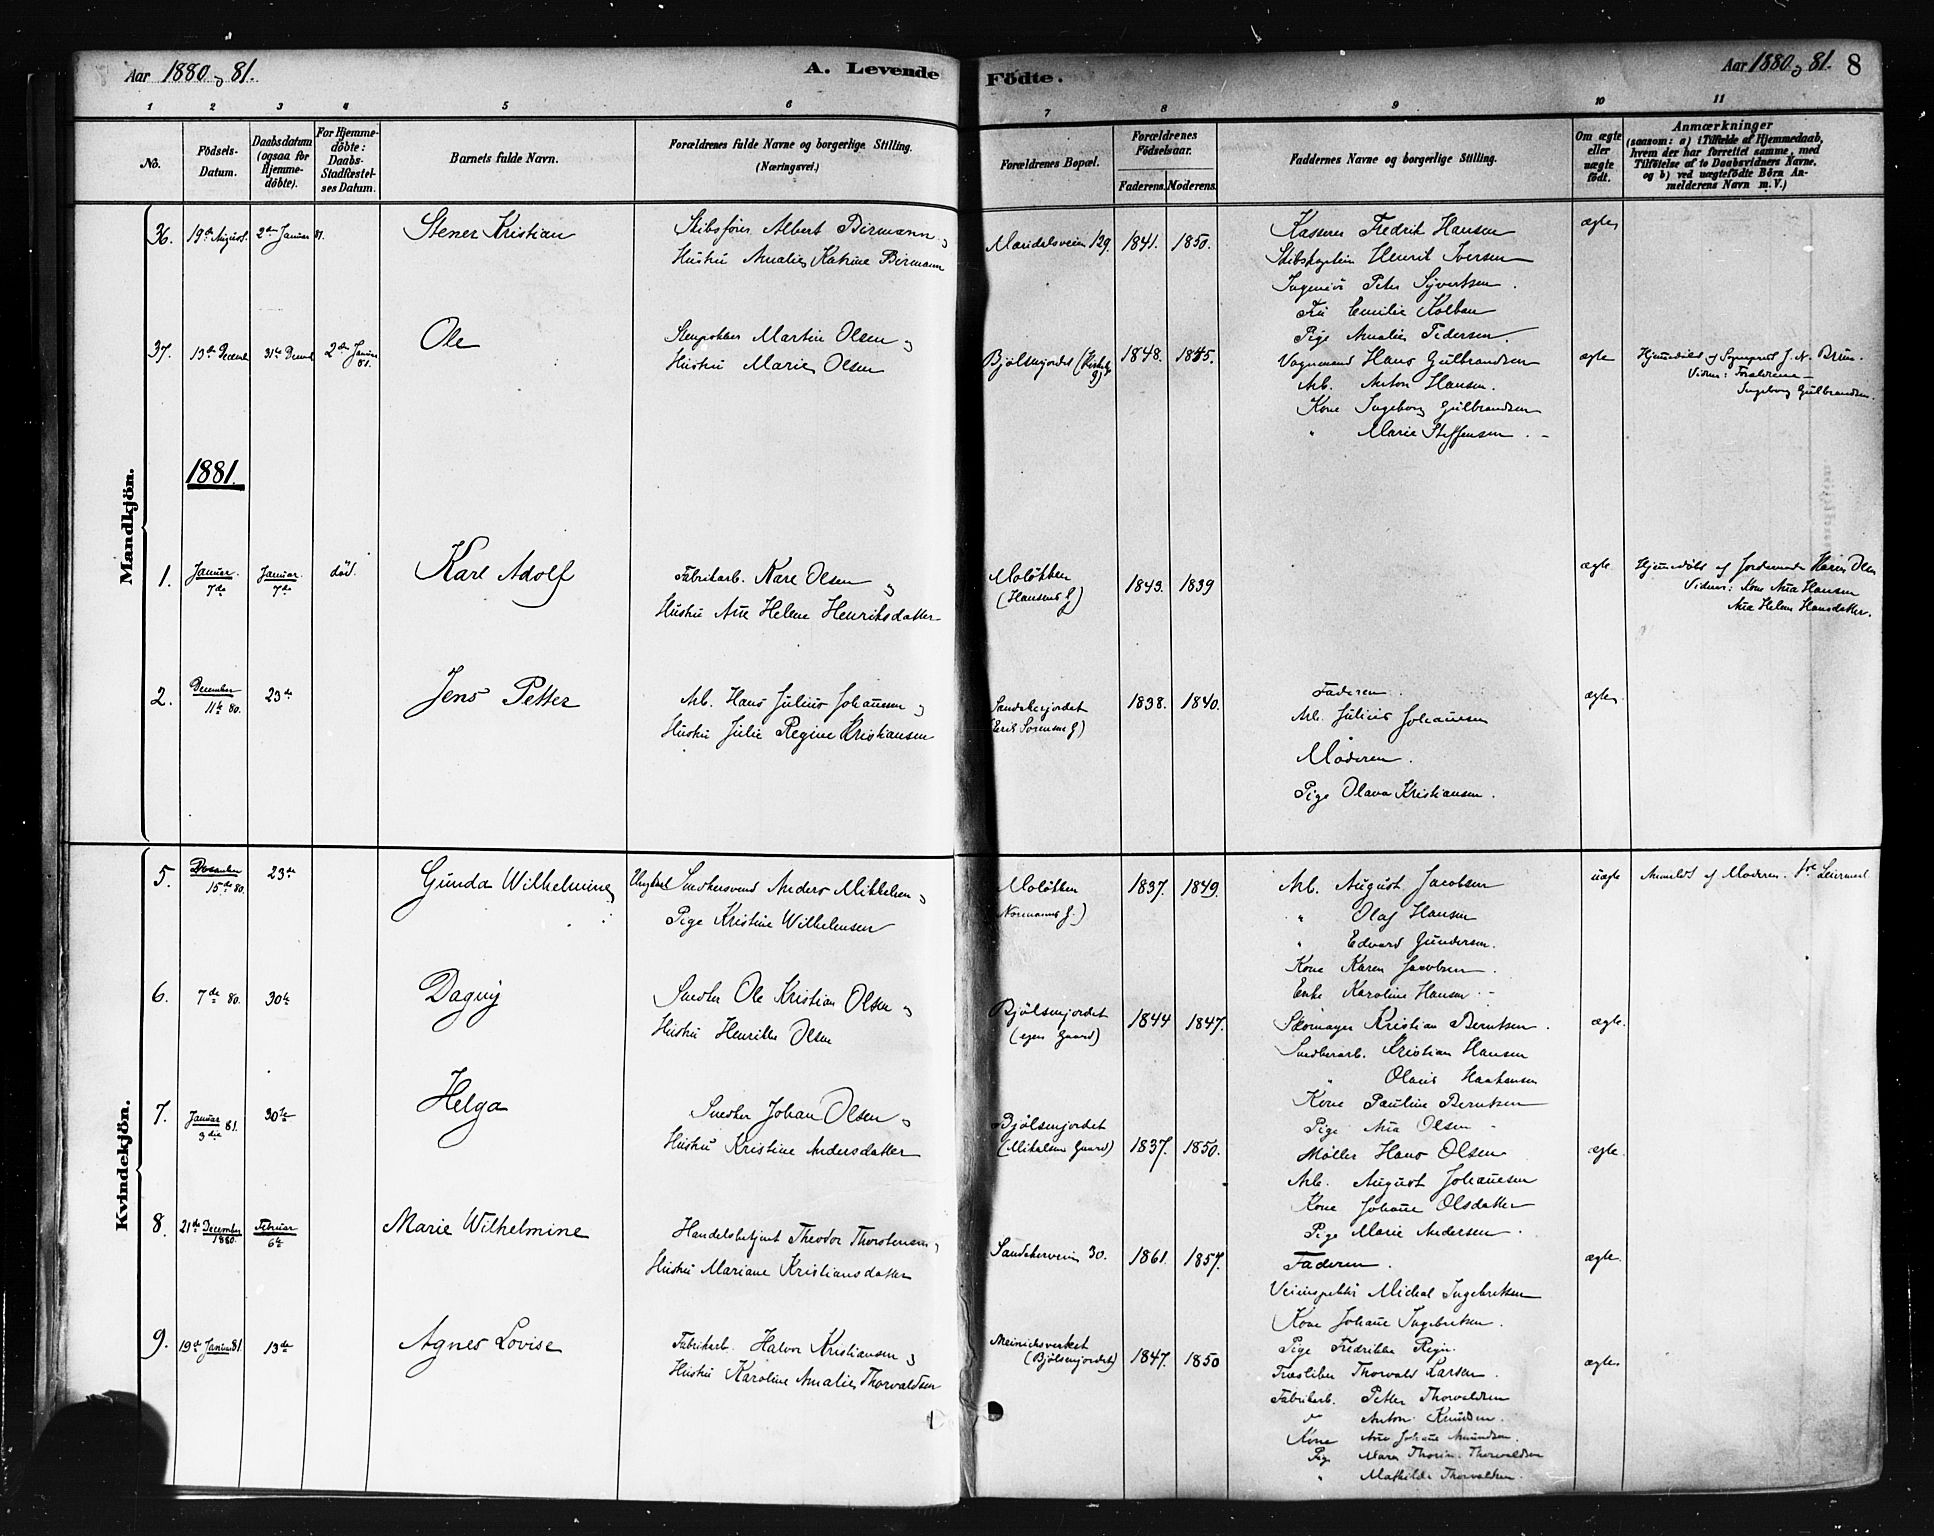 Aar 1880 og 81.
A. Levende
Fødte.
Aar 1880 og 81.
8
1 2 3 4 5 6 7 8 9 10 11
No.
Födsels-
Datum.
Daabsdatum
(ogsaa for
Hjemme-
döbte).
For Hjemme-
döbte:
Daabs-
Stadfæstel-
ses Datum.
Barnets fulde Navn.
Forældrenes fulde Navne og borgerlige Stilling.
(Næringsvei.)
Forældrenes Bopæl.
Forældrenes
Födselsaar.
Faderens. Moderens.
Faddernes Navne og borgerlige Stilling.
Om ægte
eller
uægte
födt.
Anmærkninger
(saasom: a) i Tilfælde af Hjemmedaab,
hvem der har forrettet samme, med
Tilföielse af to Daabsvidners Navne,
og b) ved uægtefödte Börn An-
melderens Navn m. V.)
Mandkjön.
36. 19de August. 2den Januar 81.
Stener Kristian
Skibsfører Albert Birmann og
Hustru Amalie Katrine Birmann
Maridalsveien 129. 1841. 1850.
Kasserer Fredrik Hansen
Skibskaptein Henrik Iversen
Ingeniør Peter Syvertsen.
Fru Emilie Kolban
Pige Amalie Pedersen.
ægte
37. 13de Decemb 31te Decemb 2den Januar
81.
Ole
Stenhokker Martin Olsen og
Hustru Marie Olsen
Bjølsenjordet 1848. 1845.
Vognmand Hans Gulbrandsen
Arb. Anton Hansen.
Kone Ingeborg Gulbrandsen
" Marie Steffensen.
ægte
Hjemmedøbt af Sogneprest J. N. Brun.
Vidner: Forældrene
Ingeborg Gulbrandsen.
1881.
1. Januar 7de Januar 7de død.
Karl Adolf
Fabrikarb. Karl Olsen og
Hustru Ane Helene Henriksdatter
Moløkken
(Hansens G)
1843. 1839
ægte
Hjemmedøbt af Jordemoder Karen Olsen
Vidner: Kone Ana Hansen
Ana Helene Hansdatter.
2. December 11te 80. 23de
Jens Petter
Arb. Hans Julius Johansen og
Hustru Julie Regine Kristiansen
Sandakerjordet
(Erik Sørensens G)
1838. 1840.
Faderen.
Arb. Julius Johansen
Moderen.
Pige Olava Kristiansen.
ægte
Kvindekjön.
5. December 15de 80. 23de
Gunda Wilhelmine
Ungkarl Snedkersvend Anders Mikkelsen og
Pige Kristine Wilhelmsen
Moløkken
Normanns G.)
1837. 1849.
Arb. August Jacobsen
" Olaf Hansen
" Edvard Gundersen.
Kone Karen Jacobsen.
Enke Karoline Hansen
uægte
Anmeldt af Moderen. 1ste Leiermaal
6. 7de 80. 30te
Dagny
Snedker Ole Kristian Olsen og
Hustru Henrikke Olsen
Bjølsenjordet
(egen Gaard)
1844 1847.
Skomager Kristian Berntsen.
Snedkerarb. Kristian Hansen
" Olaus Haakensen
Kone Pauline Berntsen
Pige Ana Olsen
ægte.
7. Januar 3die 81. 30te
Helga
Snedker Johan Olsen og
Hustru Kristine Andersdatter
Bjølsenjordet
(Mikalsens Gaard)
1837. 1850.
Møller Hans Olsen
Arb. August Johannesen
Kone Johanne Olsdatter
Pige Marie Andersen.
ægte.
8. 21de December 1880. Februar 6te
Marie Wilhelmine
Handelsbetjent Theodor Thorstensen og
Hustru Mariane Kristiansdatter
Sandakerveien 30. 1861. 1857.
Faderen.
Veiinspektør Michal Ingebretsen
Kone Johanne Ingebretsen.
Pige Fredrikke
ægte.
9. 19de Januar 81 13de
Agnes Lovise
Fabrikarb. Halvor Kristiansen og
Hustru Karoline Amalie Thorvaldsen
(Bjølsenjordet)
1847. 1850
Træsliber Thorvald Larsen.
Fabrikarb. Petter Thorvaldsen
" Anton Knudsen.
Kone Ane Johanne Amundsen.
Pige Maren Thorine Thorvaldsen
" Mathilde Thorvaldsen.
ægte